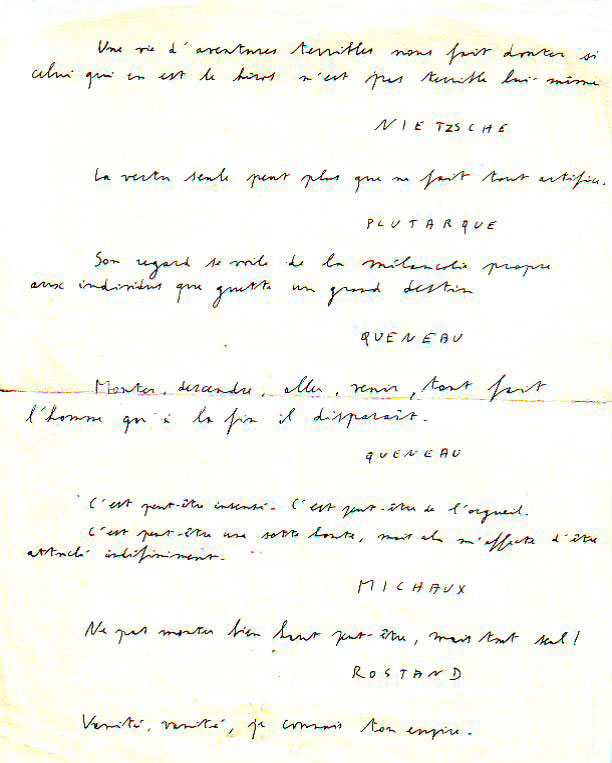 Une vie d'aventures terribles nous fait douter si
celui qui en est le héros n'est pas terrible lui-même
NIETZSCHE
La vertu seule peut plus que ne fait tout artifice.
PLUTARQUE
Son regard se voile de la mélancolie propre
aux individus que guette un grand destin
QUENEAU
Monter, descendre, aller, venir, tant fait
l'homme qu'à la fin il disparaît.
QUENEAU
C'est peut-être insensé. C'est peut-être de l'orgueil.
C'est peut-être une sotte honte, mais cela m'affecte d'être
attaché indéfiniment.
MICHAUX
Ne pas monter bien haut peut-être, mais tout seul!
ROSTAND
Vanité, vanité, je connais ton empire.